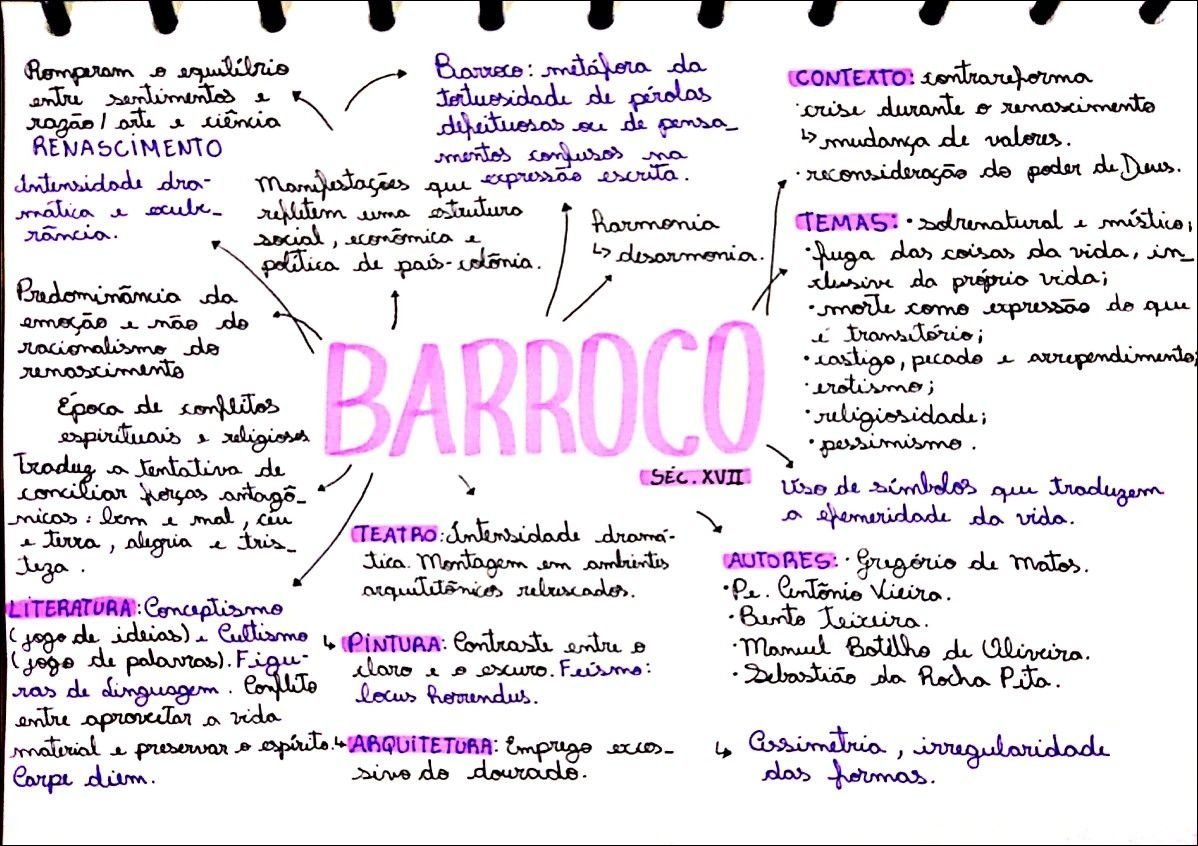 Romperam o equilíbrio
entre sentimentos e
razão/ arte e ciência
RENASCIMENTO
Intensidade dra-
mática e exube-
rância.
Predominância da
emoção e não do
racionalismo do
renascimento
Época de conflitos
espirituais e religiosos
Traduz a tentativa de
conciliar forças antagô-
nicas: bem e mal, céu
e terra, alegria e tris-
teza.
LITERATURA: Conceptismo
(jogo de ideias) e Cultismo
(jogo de palavras). Figu-
ras de Linguagem. Conflito
entre aproveitar a vida
material e preservar o espírito.
Carpe diem.
Barroco: metáfora da
tortuosidade de pérolas
defeituosas ou de pensa-
mentos confusos na
expressão escrita.
Manifestações que
refletem uma estrutura
social, econômica e
política de país-colônia.
harmonia
↳ desarmonia.
BARROCO
SÉC. XVII
TEATRO: Intensidade dramá-
tica. Montagem em ambientes
arquitetônicos rebuscados.
↳ PINTURA: Contraste entre o
claro e o escuro. Feísmo:
locus horrendus.
↳ ARQUITETURA: Emprego exces-
sivo do dourado.
CONTEXTO: contrareforma
· crise durante o renascimento
↳ mudança de valores.
· reconsideração do poder de Deus.
TEMAS: · sobrenatural e místico;
· fuga das coisas da vida, in-
clusive da própria vida;
· morte como expressão do que
é transitório;
· castigo, pecado e arrependimento;
· erotismo;
· religiosidade;
· pessimismo.
Uso de símbolos que traduzem
a efemeridade da vida.
AUTORES: · Gregório de Matos.
· Pe. Antônio Vieira.
· Bento Teixeira.
· Manuel Botelho de Oliveira.
· Sebastião da Rocha Pita.
↳ Assimetria, irregularidade
das formas.